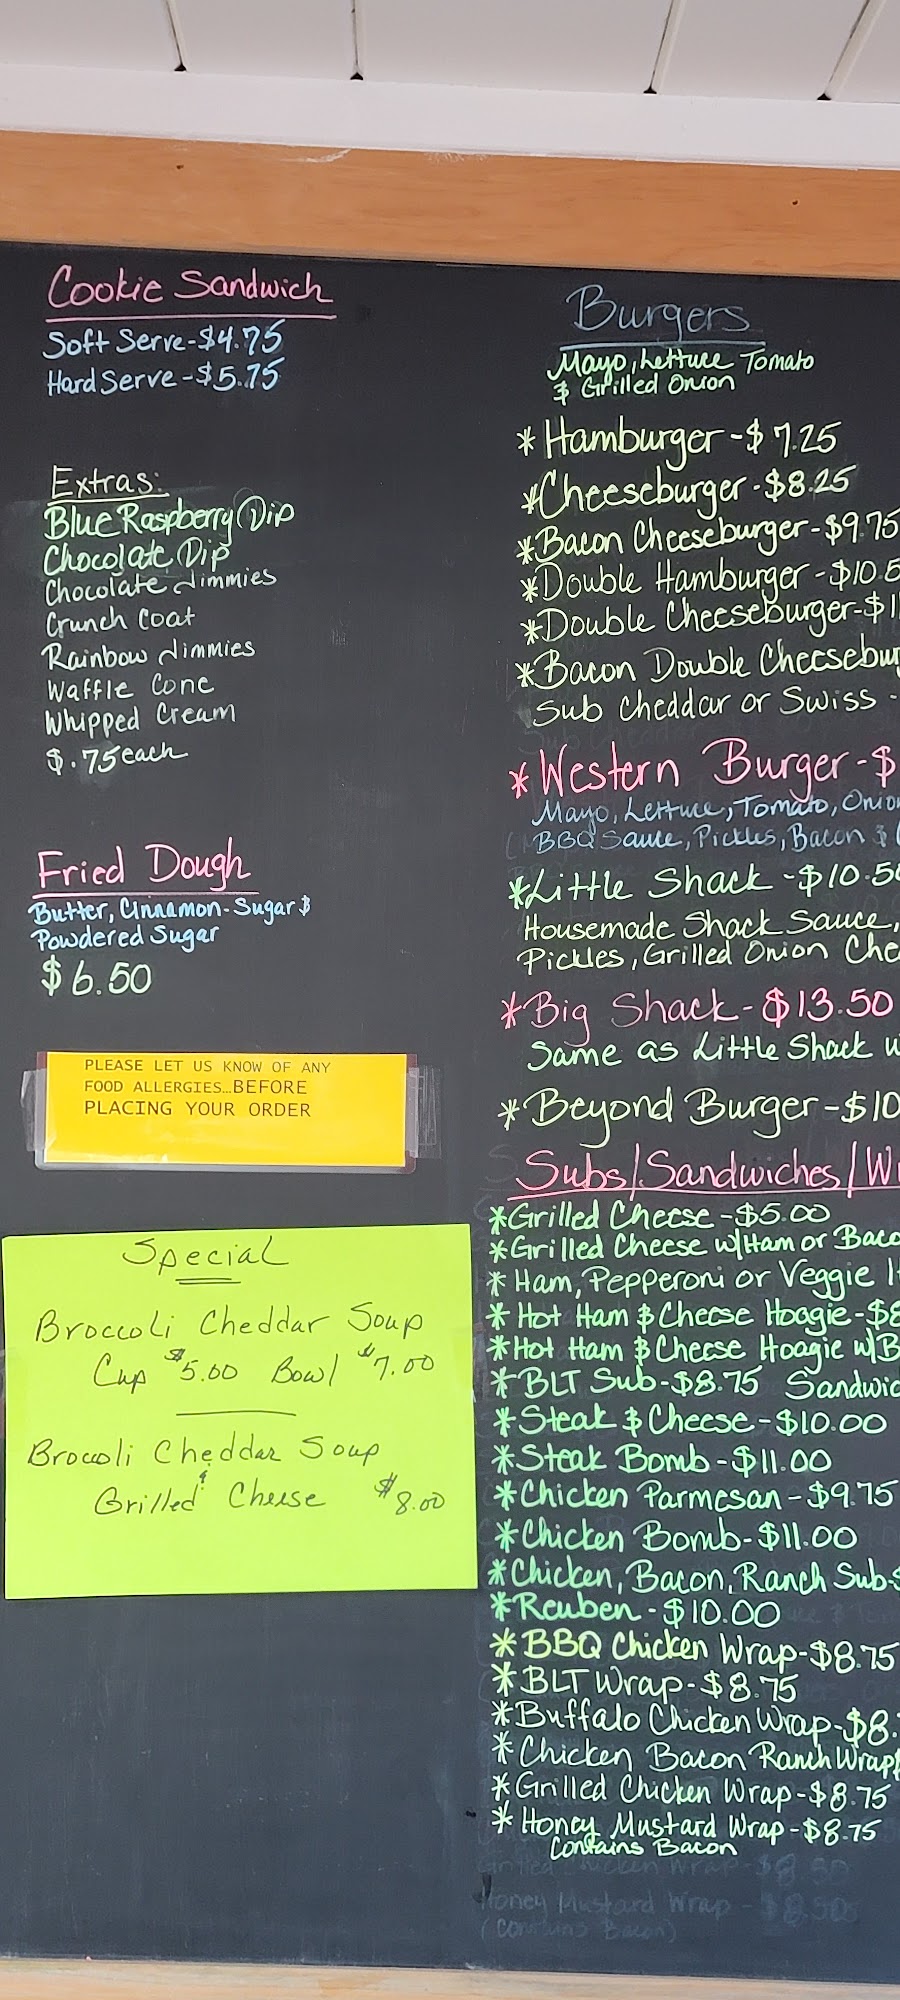 Cookie Sandwich
Soft Serve-$4.75
Hard Serve-$5.75
Extras:
Blue Raspberry Dip
Chocolate Dip
Chocolate Jimmies
Crunch Coat
Rainbow Jimmies
Waffle Cone
Whipped Cream
$.75 each
Fried Dough
Butter, Cinnamon-Sugar &
Powdered Sugar
$6.50
PLEASE LET US KNOW OF ANY
FOOD ALLERGIES...BEFORE
PLACING YOUR ORDER
Special
Broccoli Cheddar Soup
Cup $5.00 Bowl $7.00
Broccoli Cheddar Soup
&
Grilled Cheese $8.00
Burgers
Mayo, Lettuce Tomato
& Grilled Onion
* Hamburger-$7.25
*Cheeseburger-$8.25
*Bacon Cheeseburger-$9.75
*Double Hamburger-$10.5
*Double Cheeseburger-$1
*Bacon Double Cheesebur
Sub Cheddar or Swiss -
*Western Burger-$
Mayo, Lettuce, Tomato, Onion
BBQ Sauce, Pickles, Bacon &
*Little Shack-$10.50
Housemade Shack Sauce,
Pickles, Grilled Onion Che
*Big Shack-$13.50
Same as Little Shack w
*Beyond Burger-$10
Subs/Sandwiches/Wr
*Grilled Cheese-$5.00
*Grilled Cheese w/Ham or Baco
*Ham, Pepperoni or Veggie I
*Hot Ham & Cheese Hoagie-$8
*Hot Ham & Cheese Hoagie w/B
*BLT Sub-$8.75 Sandwic
*Steak & Cheese-$10.00
*Steak Bomb-$11.00
*Chicken Parmesan-$9.75
*Chicken Bomb-$11.00
*Chicken, Bacon, Ranch Sub-$
*Reuben-$10.00
*BBQ Chicken Wrap-$8.75
*BLT Wrap-$8.75
*Buffalo Chicken Wrap-$8.
*Chicken Bacon Ranch Wrap
*Grilled Chicken Wrap-$8.75
*Honey Mustard Wrap-$8.75
Contains Bacon
Grilled Chicken Wrap-$8.50
Honey Mustard Wrap - $8.50
(Contains Bacon)